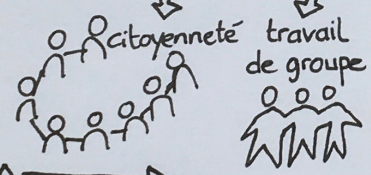 citoyenneté
travail
de groupe